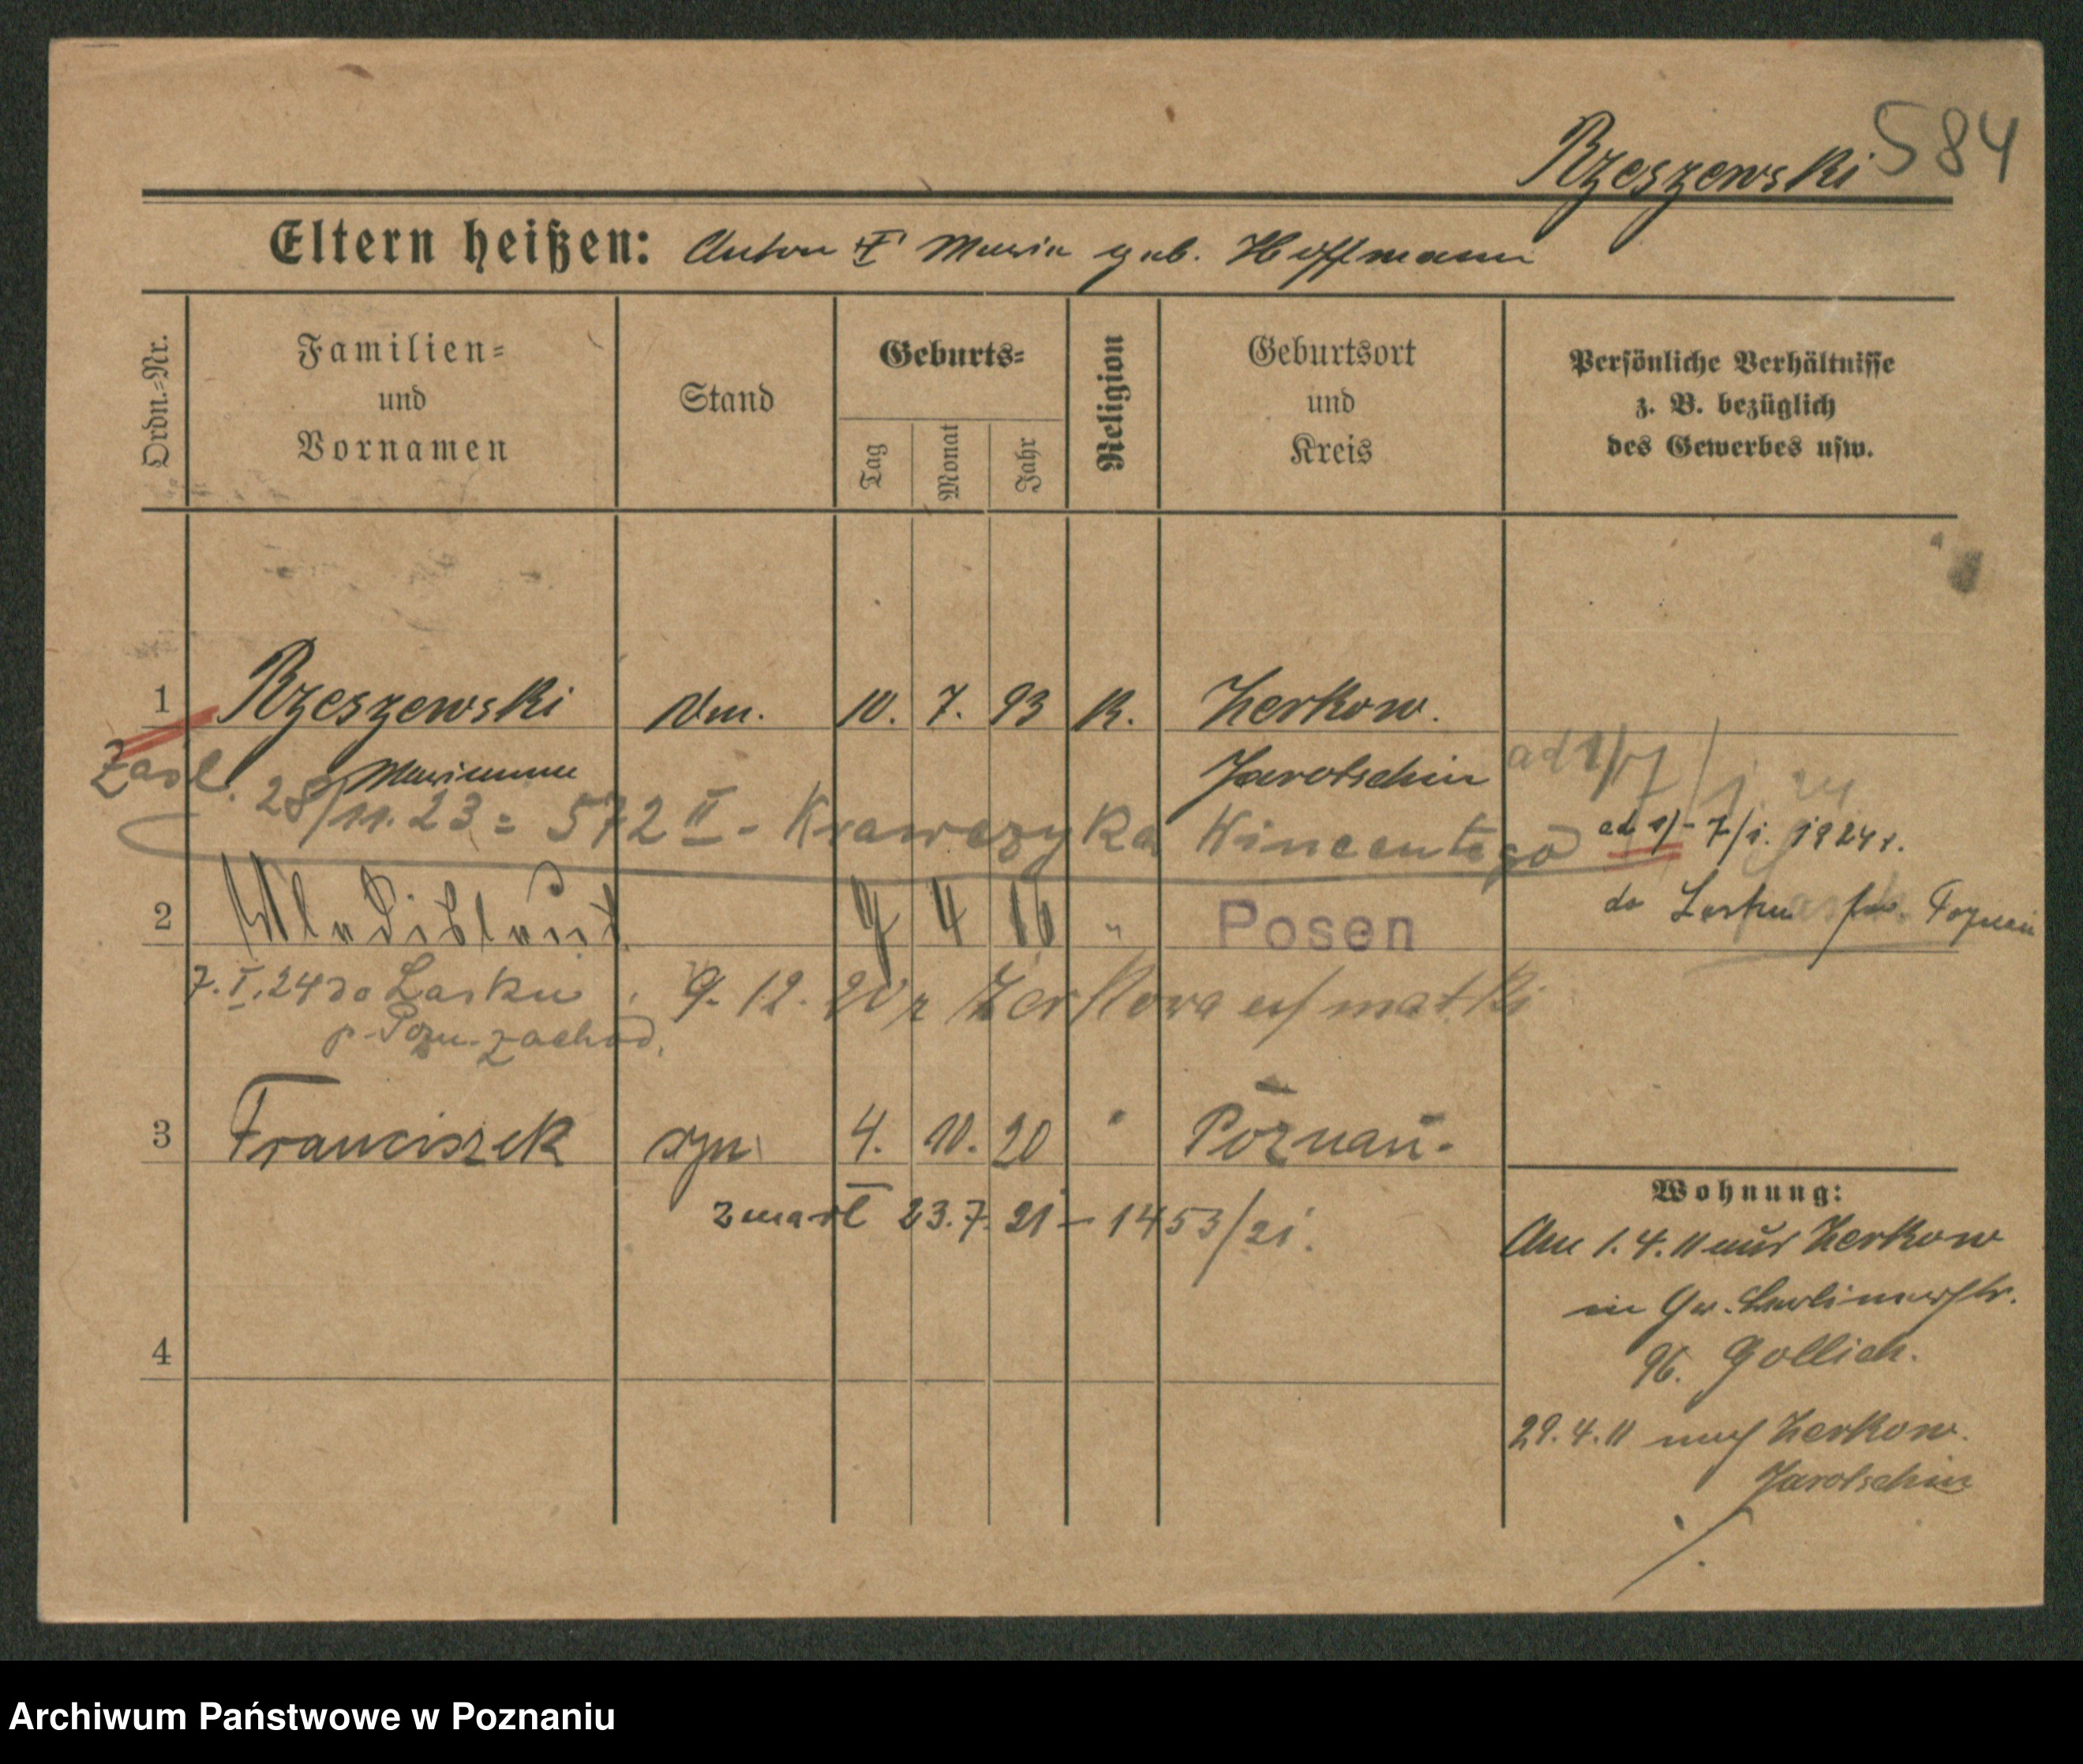 584
Rzeszewski
Eltern heißen: Anton † Maria geb. Hoffmann
Ordn.-Nr.
Familien-
und
Vornamen
Stand
Geburts-
Tag
Monat
Jahr
Religion
Geburtsort
und
Kreis
Persönliche Verhältnisse
z. B. bezüglich
des Gewerbes usw.
1 Rzeszewski 10. 7. 93 K. Zerkow.
Marianna Jarotschin
Zaśl. 28/11.23 = 572 II - Krawczyka Wincentego
ad 1/ 7/1 24
ad 1/- 7/1. 1924 r.
do Lasku pow. Poznań
2 Wladislaus 9 4 16 " Posen
7.I.24 do Lasku
p. Pozn. zachod.
9. 12. 20 z Zerkowa od matki
3 Franciszek syn 4. 10. 20 " Poznań.
zmarł 23.7.21 - 1453/21.
4
Wohnung:
Am 1.4.11 aus Zerkow
in Gr. Berlinerstr.
96. Gollich.
29.4.11 nach Zerkow.
Jarotschin
Archiwum Państwowe w Poznaniu